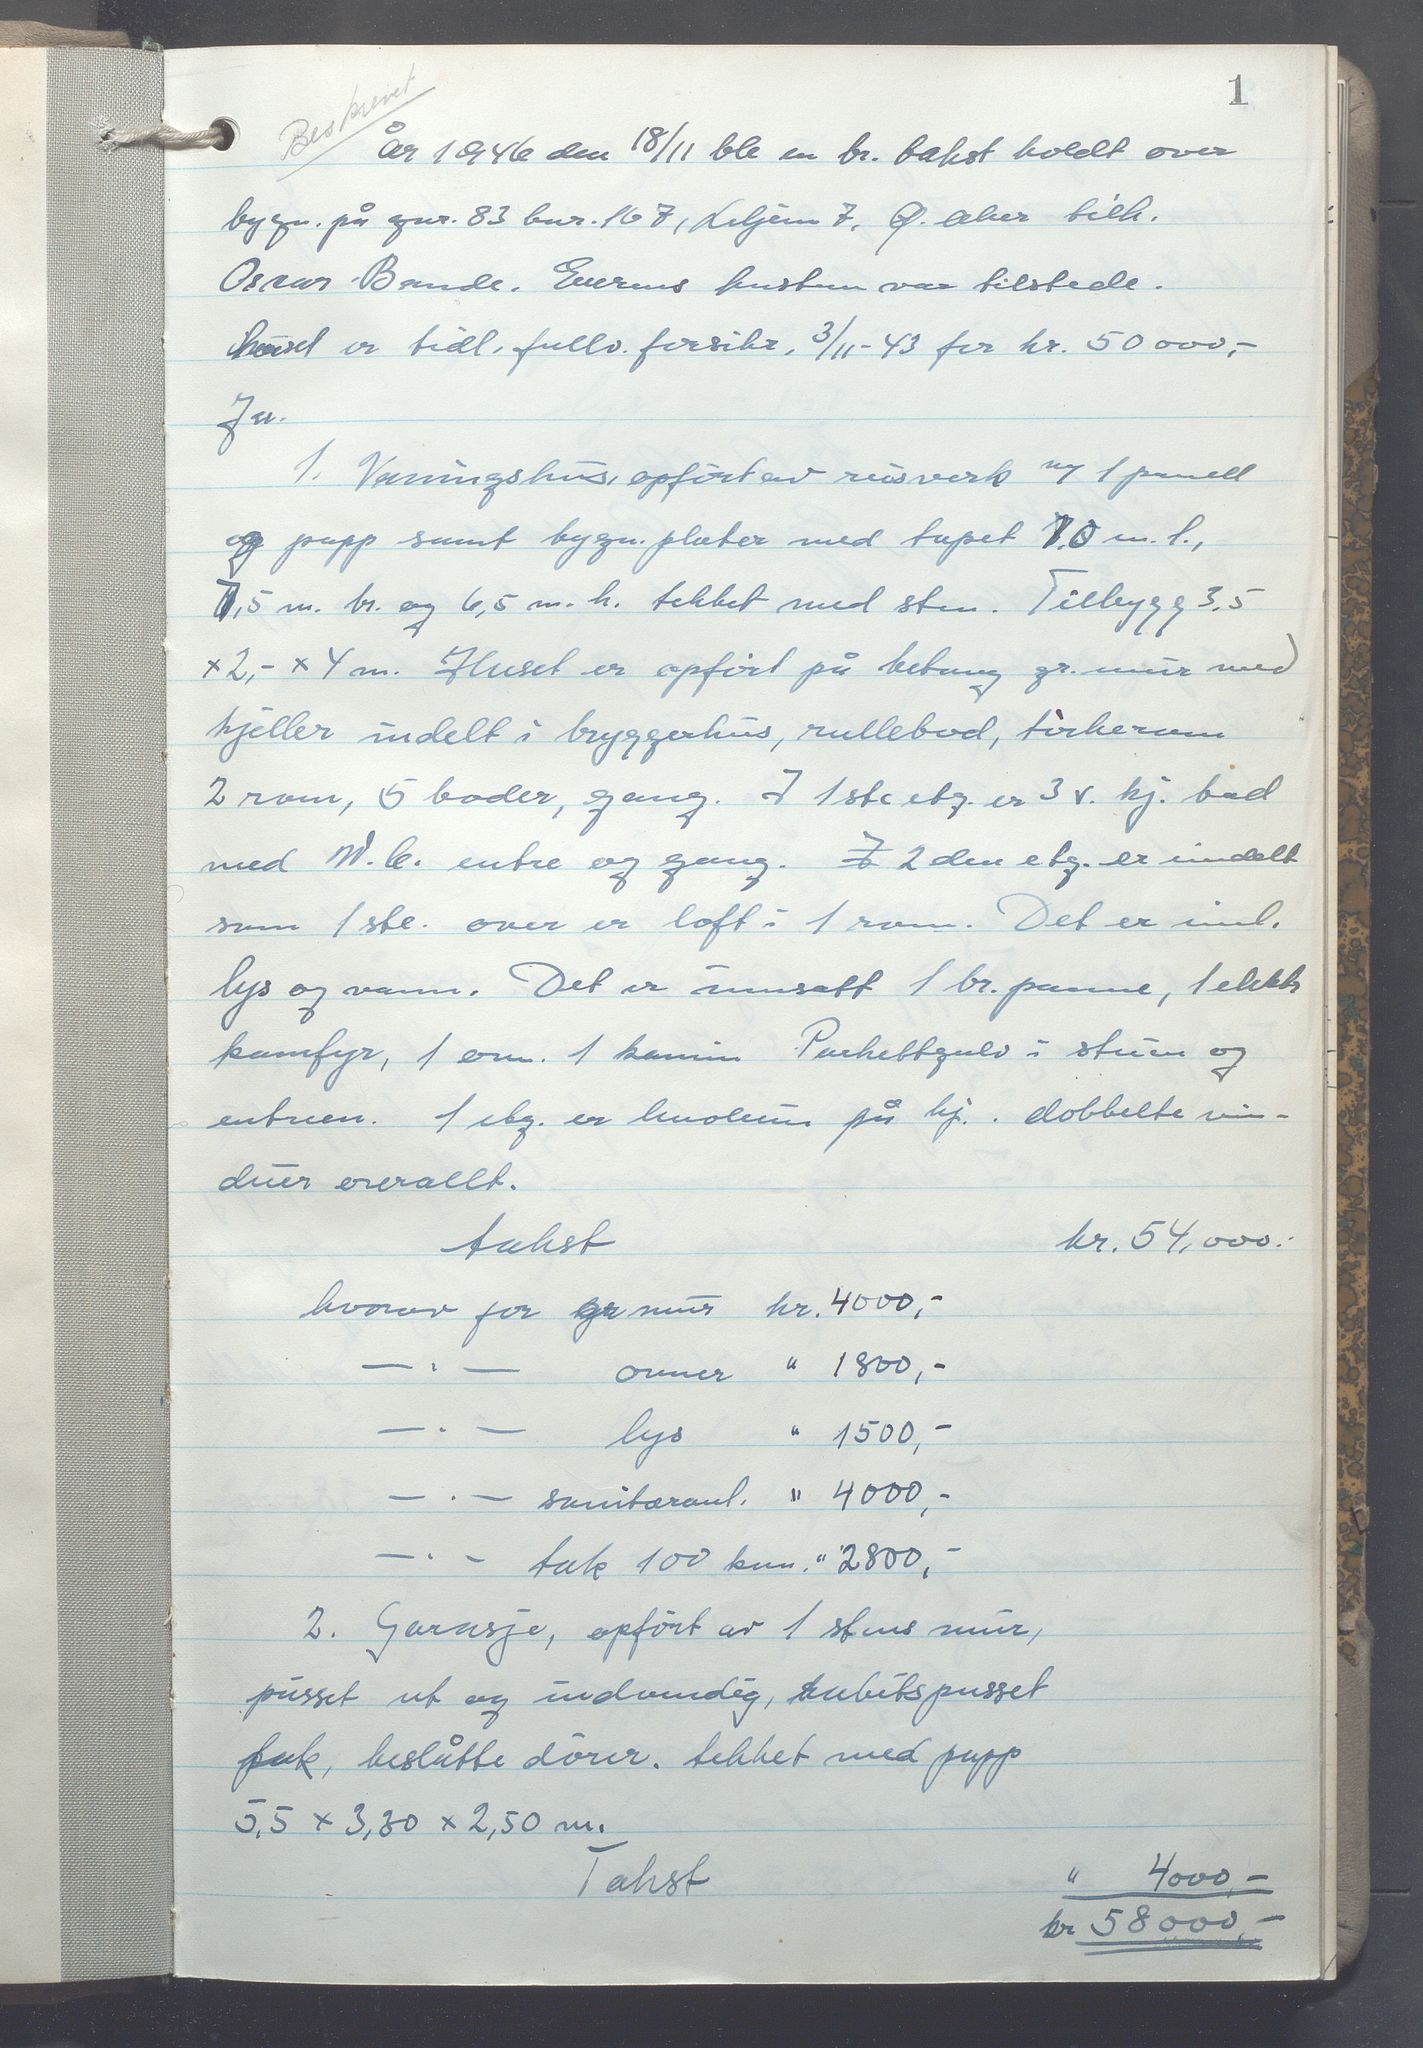 1
Beskrevet
År 1946 den 18/11 ble en br. takst holdt over
bygn. på gnr. 83 bnr. 167, 7, Ø. Aker tilh.
Oscar Bande. Eierens hustru var tilstede.
huset er tidl. fullv. forsikr. 3/11-43 for kr. 50 000,-
Jar.
1. Vaningshus, opført av reisverk m/ 1 panell
og papp samt bygn. plater med tapet 10 m. l.,
7,5 m. br. og 6,5 m. h. tekket med sten. Tilbygg 3,5
x 2,- x 4 m. Huset er opført på betong gr. mur med
kjeller indelt i bryggerhus, rullebod, tørkerum
2 rom, 5 boder, gang. I 1ste etg. er 3 v. kj. bad
med W.C. entre og gang. 2 den etg. er inndelt
som 1 ste. over er loft i 1 rom. Det er innl.
lys og vann. Det er innsatt 1 br. panne, 1 elektr
kamfyr, 1 ovn. 1 kamin Parkettgulv i stuen og
entreen. 1 etg. er linoleum på kj. . dobbelte vin-
duer overallt.
takst kr. 54,000.-
hvorav for gr mur kr. 4000,-
— . — ovner " 1800,-
— . — lys " 1500,-
— . — sanitæranl. " 4000,-
— . — tak 100 kvm. " 2800,-
2. Garasje, opført av 1 stens mur,
pusset ut og indvendig, rabitspusset
tak, beslåtte dører. tekket med papp
5,5 x 3,30 x 2,50 m.
Takst " 4000,-
kr 58000,-